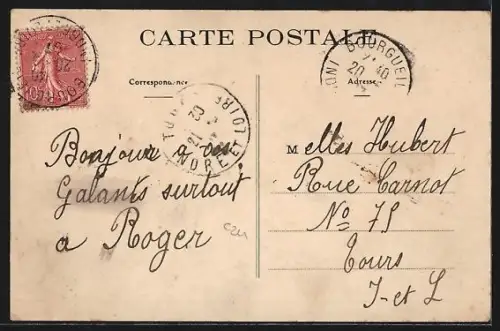 CARTE POSTALE
Correspondance
Adresse
BOURGUEIL
20
TOURS
INDRE ET LOIRE
Bonjour a vos
Galants surtout
a Roger
Melles Hubert
Rue Carnot
No 75
Tours
I-et L